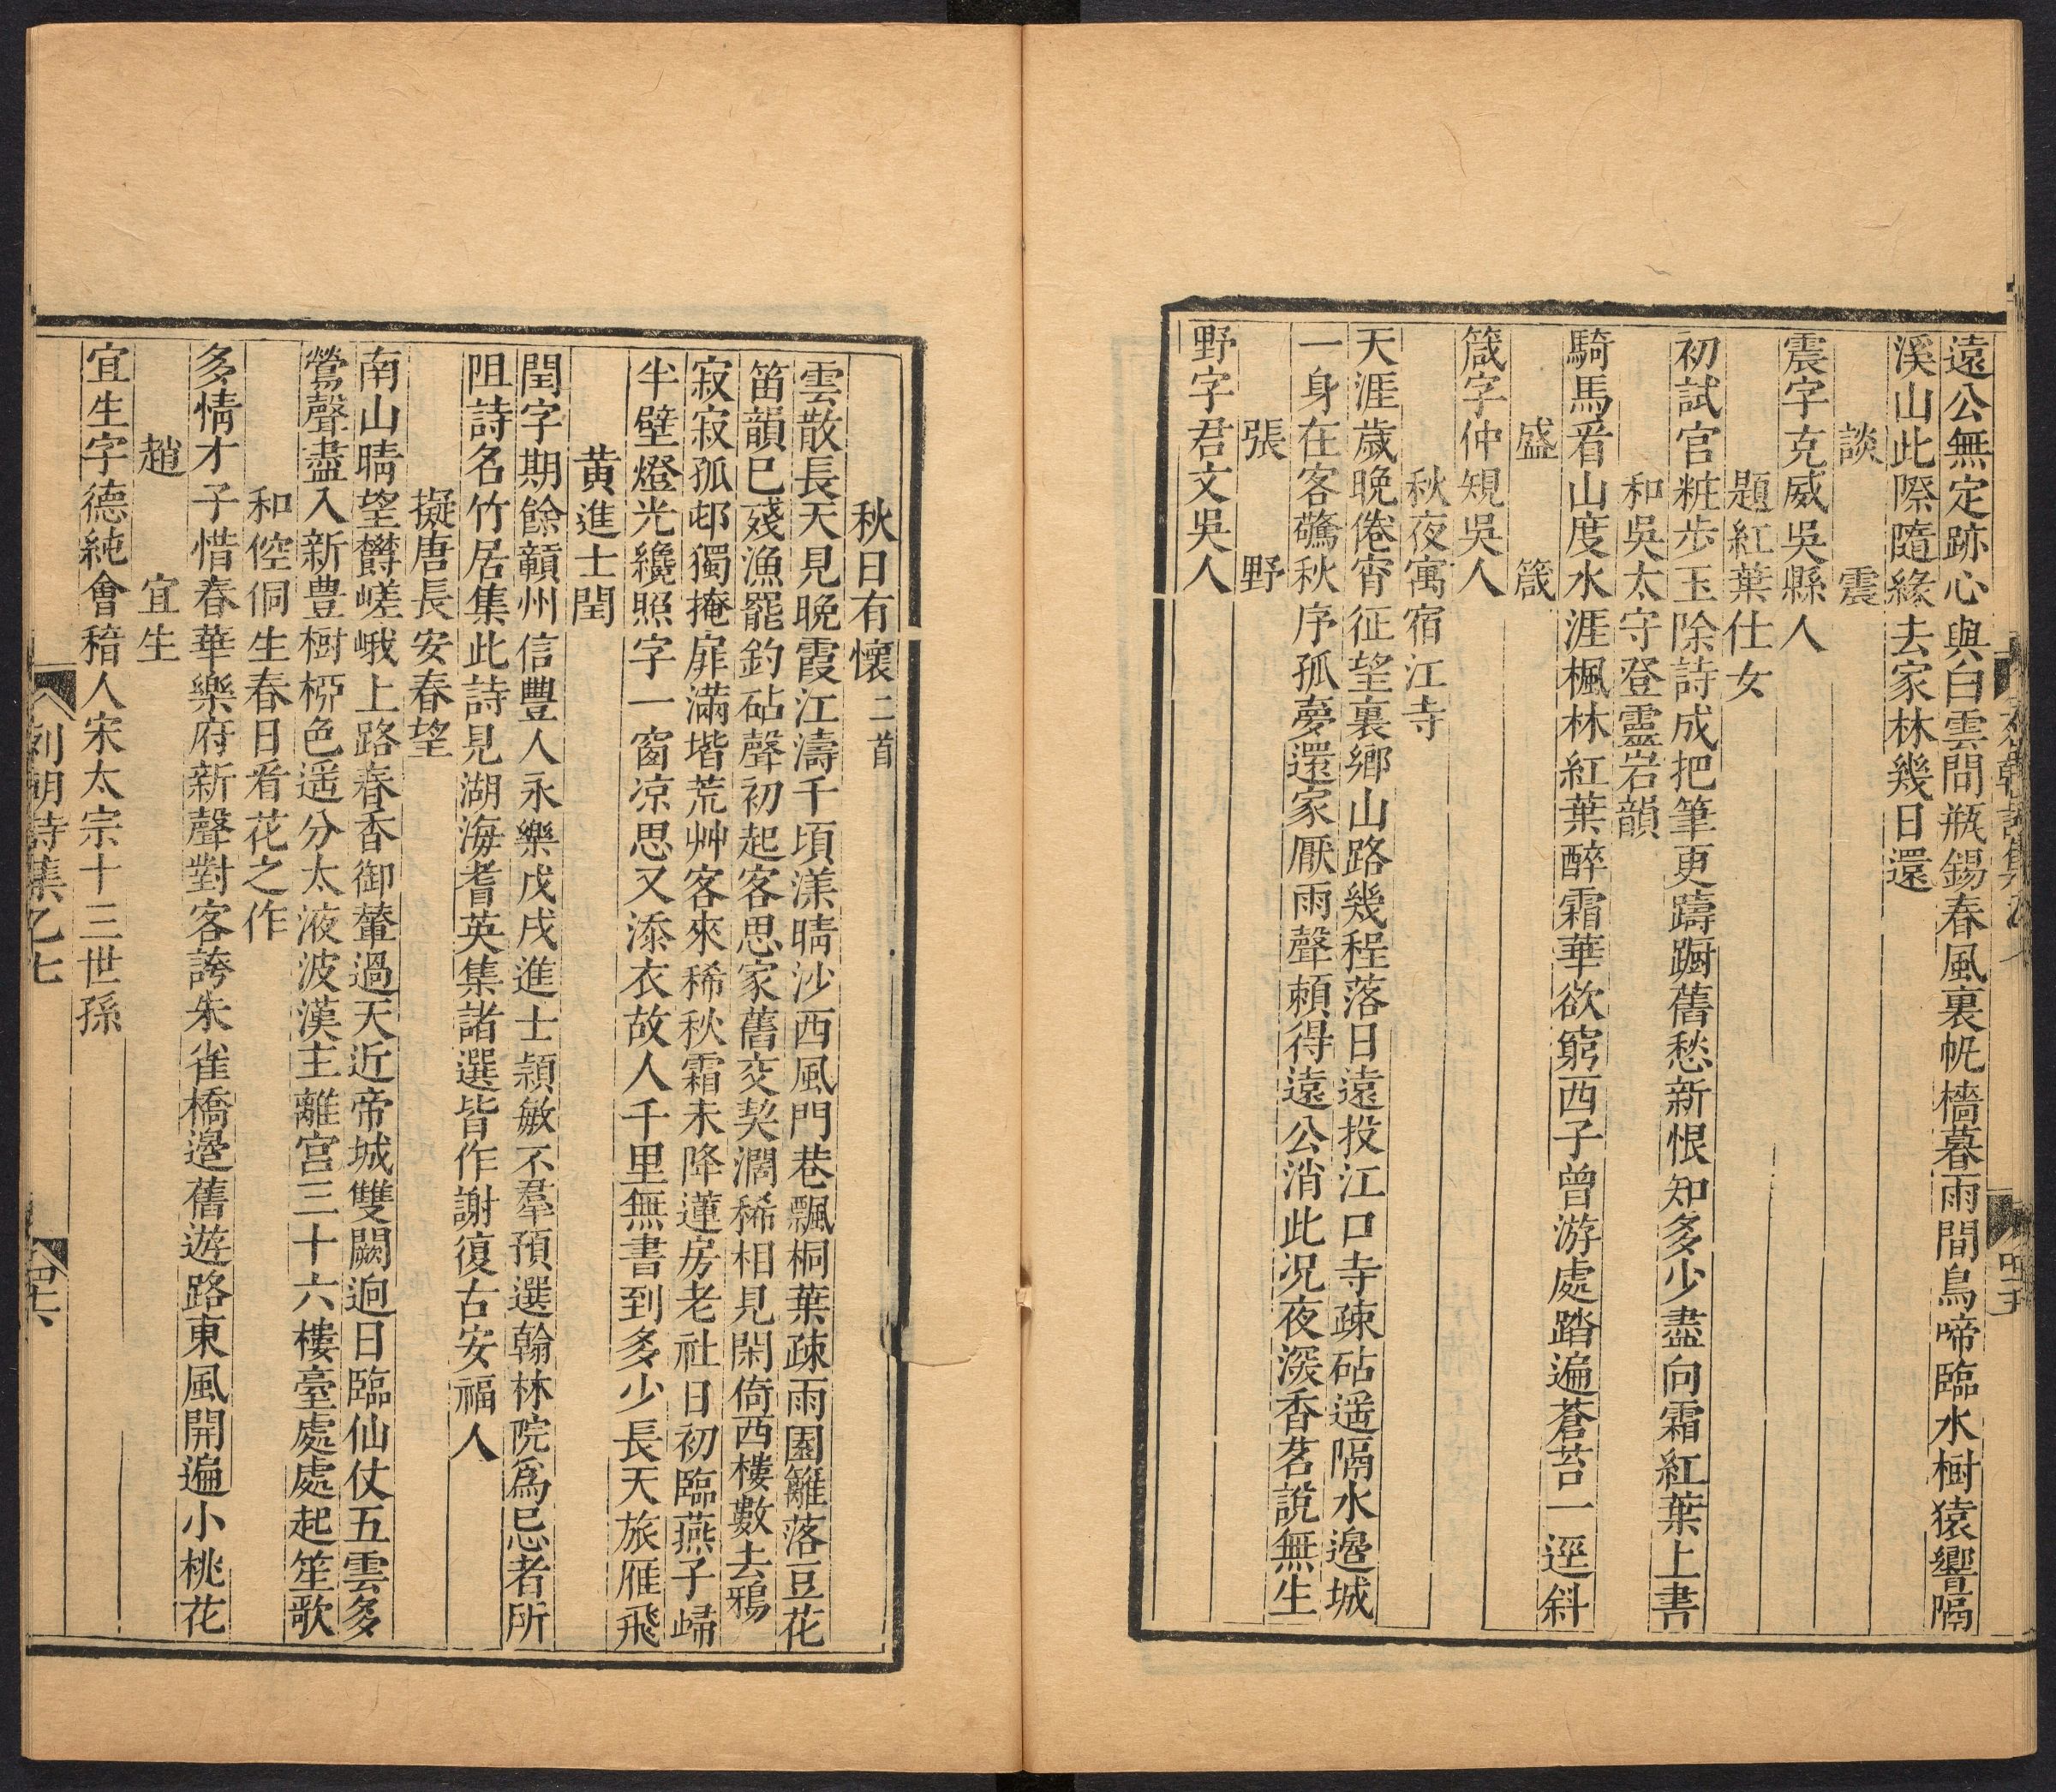 遠公無定跡心與白雲問瓶錫春風裏帆檣暮雨間鳥啼臨水樹猿響隔
溪山此際隨緣去家林幾日還
談　震
震字克威吳縣人
題紅葉仕女
初試官粧步玉除詩成把筆更躊躕舊愁新恨知多少盡向霜紅葉上書
和吳太守登靈岩韻
騎馬看山度水涯楓林紅葉醉霜華欲窮西子曾游處踏遍蒼苔一逕斜
盛　箴
箴字仲規吳人
秋夜寓宿江寺
天涯歲晚倦宵征望裏鄉山路幾程落日遠投江口寺疎砧遥隔水邉城
一身在客驚秋序孤夢還家厭雨聲頼得遠公消此况夜深香茗說無生
張　野
野字君文吳人
秋日有懷二首
雲散長天見晚霞江濤千頃漾晴沙西風門巷飄桐葉疎雨園籬落豆花
笛韻已殘漁罷釣砧聲初起客思家舊交契濶稀相見閑倚西樓數去鴉
寂寂孤邨獨掩扉滿堦荒艸客來稀秋霜未降蓮房老社日初臨燕子歸
半壁燈光纔照字一窗凉思又添衣故人千里無書到多少長天旅雁飛
黄進士閏
閏字期餘贑州信豐人永樂戊戌進士頴敏不羣預選翰林院爲忌者所
阻詩名竹居集此詩見湖海耆英集諸選皆作謝復古安福人
擬唐長安春望
南山晴望欝嵯峨上路春香御輦過天近帝城雙闕逈日臨仙仗五雲多
鶯聲盡入新豊樹栁色遥分太液波漢主離宮三十六樓臺處處起笙歌
和倥侗生春日看花之作
多情才子惜春華樂府新聲對客誇朱雀橋邉舊遊路東風開遍小桃花
趙　宜生
宜生字德純會稽人宋太宗十三世孫
列朝詩集乙七
四十六